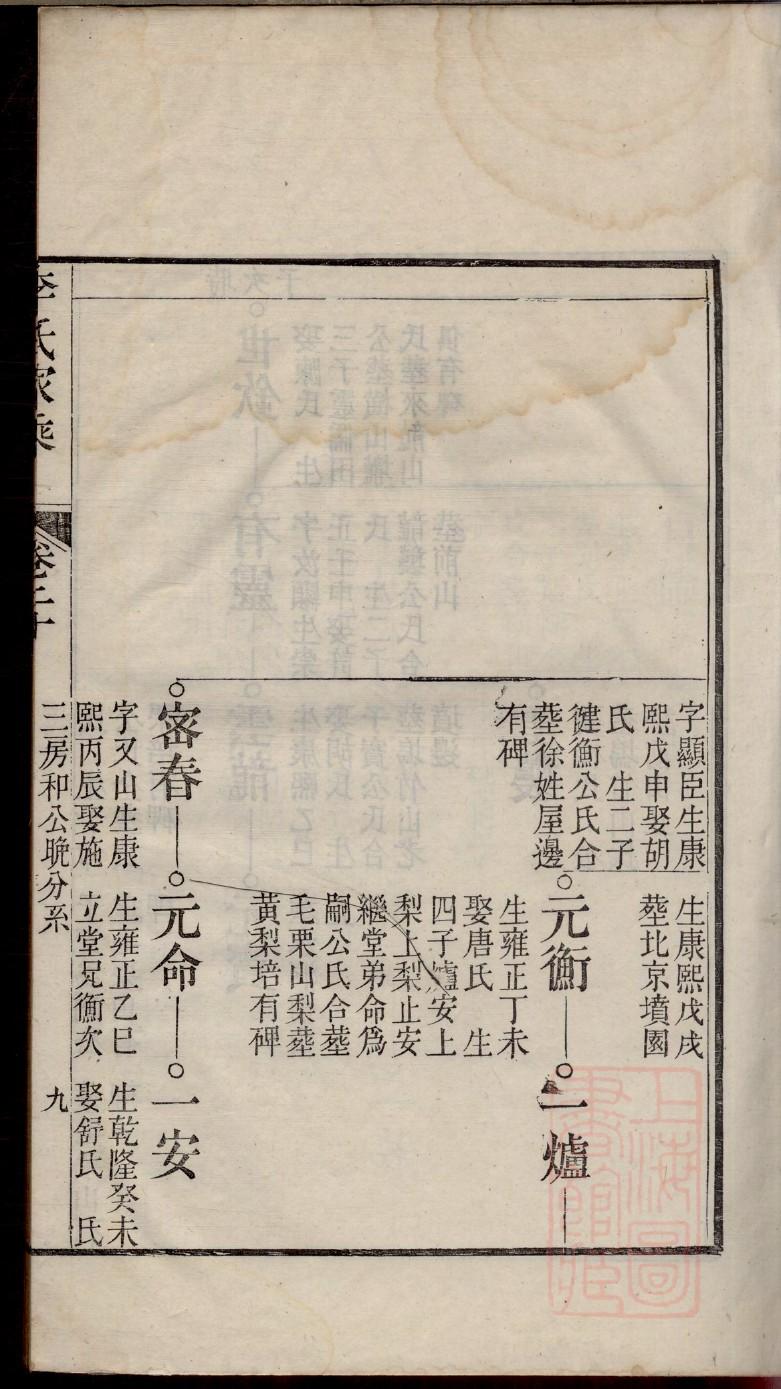 字顯臣生康
熙戊申娶胡
氏　生二子
徤衡公氏合
塟徐姓屋邊
有碑
生康熙戊戌
塟北京墳園
元衡
生雍正丁未
娶唐氏　生
四子爐安上
梨上梨止安
繼堂弟命爲
嗣公氏合塟
毛栗山梨塟
黃梨培有碑
一爐
宻春
字又山生康
熙丙辰娶施
元命
生雍正乙巳
立堂兄衡次
一安
生乾隆癸未
娶舒氏　氏
李氏家乘
卷二十
三房和公晚分系
九
上海圖書館藏